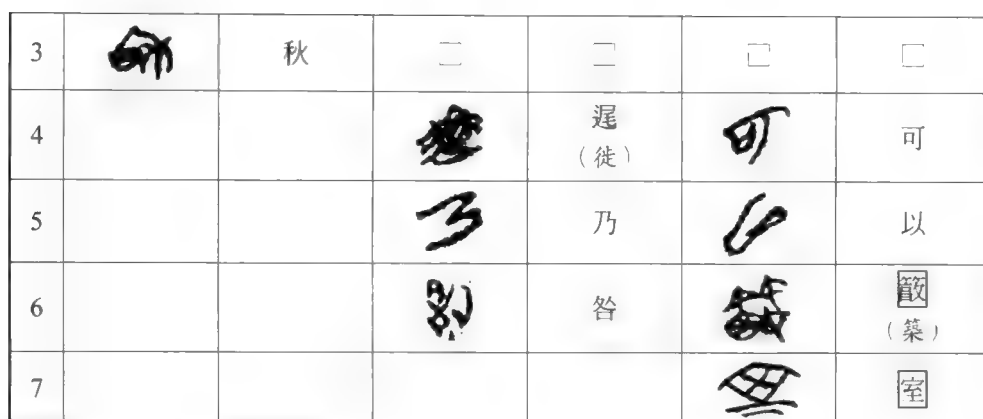 3 秋 □ □ □ □
4 遟（徙） 可
5 乃 以
6 咎 簢（築）
7 室